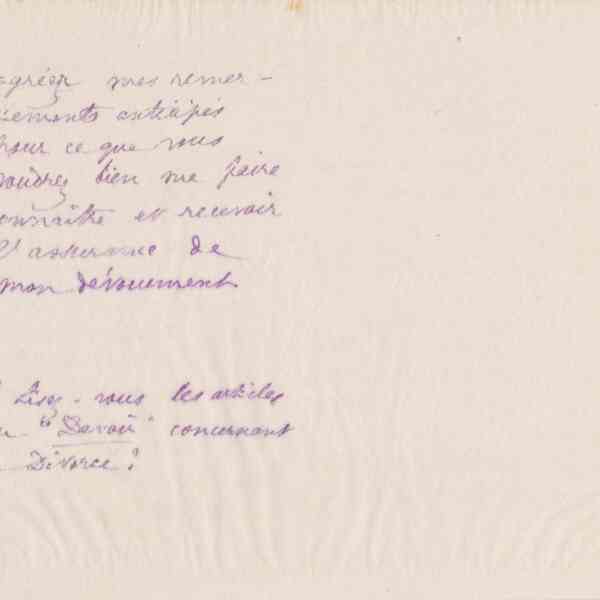 agréez mes remer-
ciements anticipés
pour ce que vous
voudrez bien me faire
connaître et recevoir
l'assurance de
mon dévouement.
Lisez-vous les articles
"Devoir" concernant
Divorce?